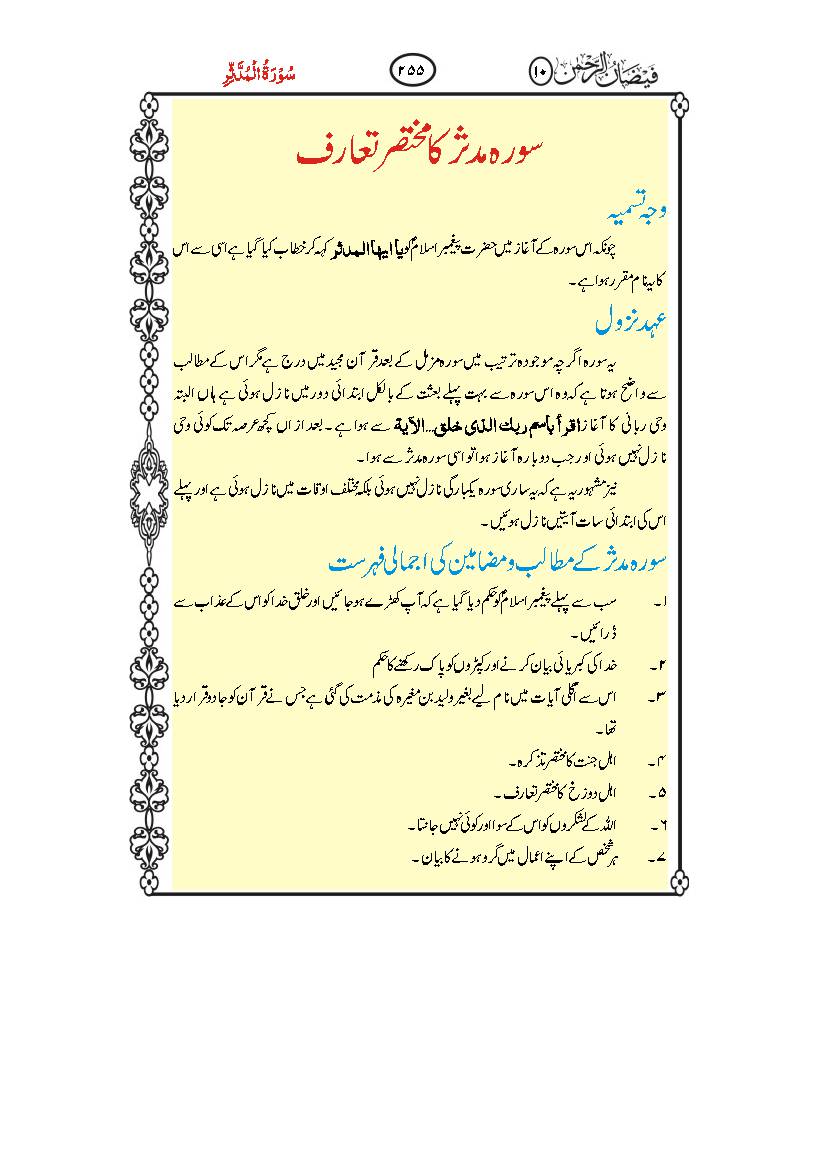 فیضان الرحمٰن ۱۰
۲۵۵
سُوْرَۃُ الْمُدَّثِّرِ
سورہ مدثر کا مختصر تعارف
وجہ تسمیہ
چونکہ اس سورہ کے آغاز میں حضرت پیغمبر اسلامؐ کو یا ایھا المدثر کہہ کر خطاب کیا گیا ہے اسی سے اس
کا یہ نام مقرر ہوا ہے۔
عہد نزول
یہ سورہ اگرچہ موجودہ ترتیب میں سورہ مزمل کے بعد قرآن مجید میں درج ہے مگر اس کے مطالب
سے واضح ہوتا ہے کہ وہ اس سورہ سے بہت پہلے بعثت کے بالکل ابتدائی دور میں نازل ہوئی ہے ہاں البتہ
وحی ربانی کا آغاز اقرأ باسم ربك الذی خلق...الآیة سے ہوا ہے۔ بعد ازاں کچھ عرصہ تک کوئی وحی
نازل نہیں ہوئی اور جب دوبارہ آغاز ہوا تو اسی سورہ مدثر سے ہوا۔
نیز مشہور یہ ہے کہ یہ ساری سورہ یکبارگی نازل نہیں ہوئی بلکہ مختلف اوقات میں نازل ہوئی ہے اور پہلے
اس کی ابتدائی سات آیتیں نازل ہوئیں۔
سورہ مدثر کے مطالب و مضامین کی اجمالی فہرست
۱۔ سب سے پہلے پیغمبر اسلامؐ کو حکم دیا گیا ہے کہ آپ کھڑے ہو جائیں اور خلق خدا کو اس کے عذاب سے
ڈرائیں۔
۲۔ خدا کی کبریائی بیان کرنے اور کپڑوں کو پاک رکھنے کا حکم
۳۔ اس سے اگلی آیات میں نام لیے بغیر ولید بن مغیرہ کی مذمت کی گئی ہے جس نے قرآن کو جادو قرار دیا
تھا۔
۴۔ اہل جنت کا مختصر تذکرہ۔
۵۔ اہل دوزخ کا مختصر تعارف۔
۶۔ اللہ کے لشکروں کو اس کے سوا اور کوئی نہیں جانتا۔
۷۔ ہر شخص کے اپنے اعمال میں گرو ہونے کا بیان۔